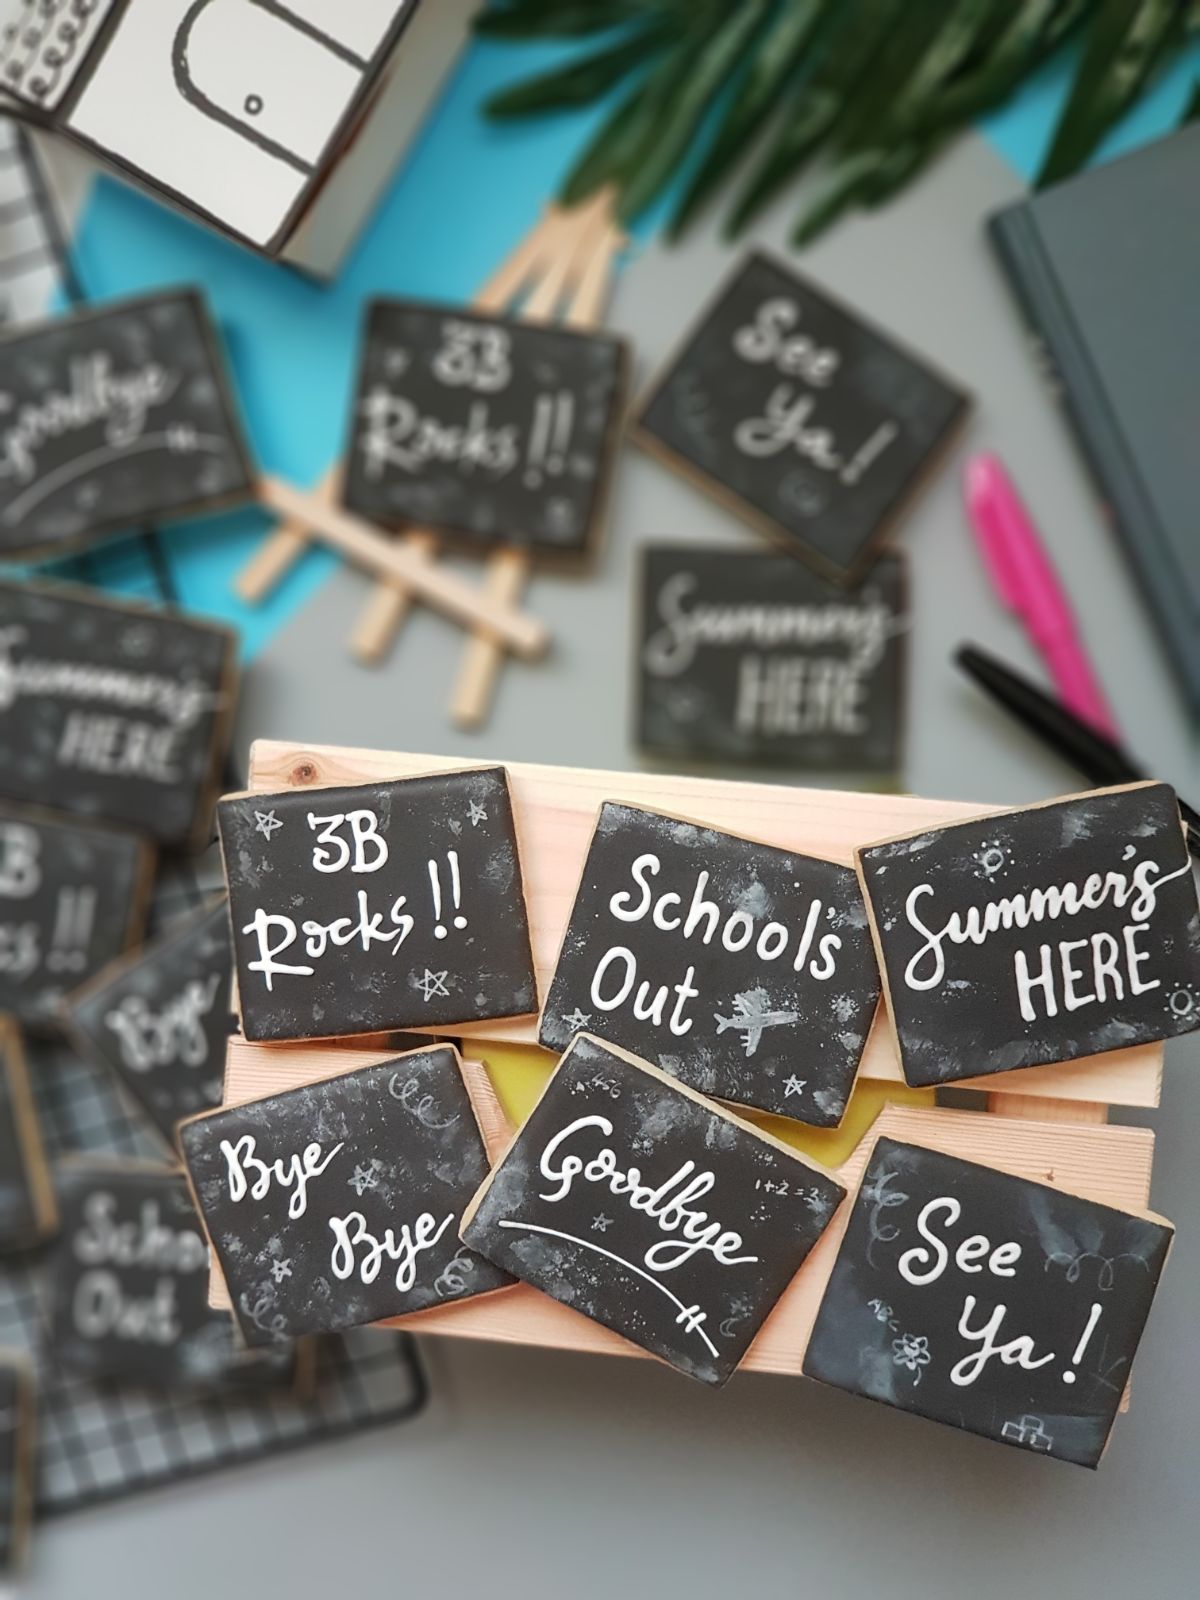 Goodbye
3B
Rocks !!
See
Ya !
Summer's
HERE
Summer's
HERE
3B
Rocks !!
School's
Out
Summer's
HERE
Bye
Bye
Bye
456
Goodbye
1+2=3
See
Ya !
ABC
Out